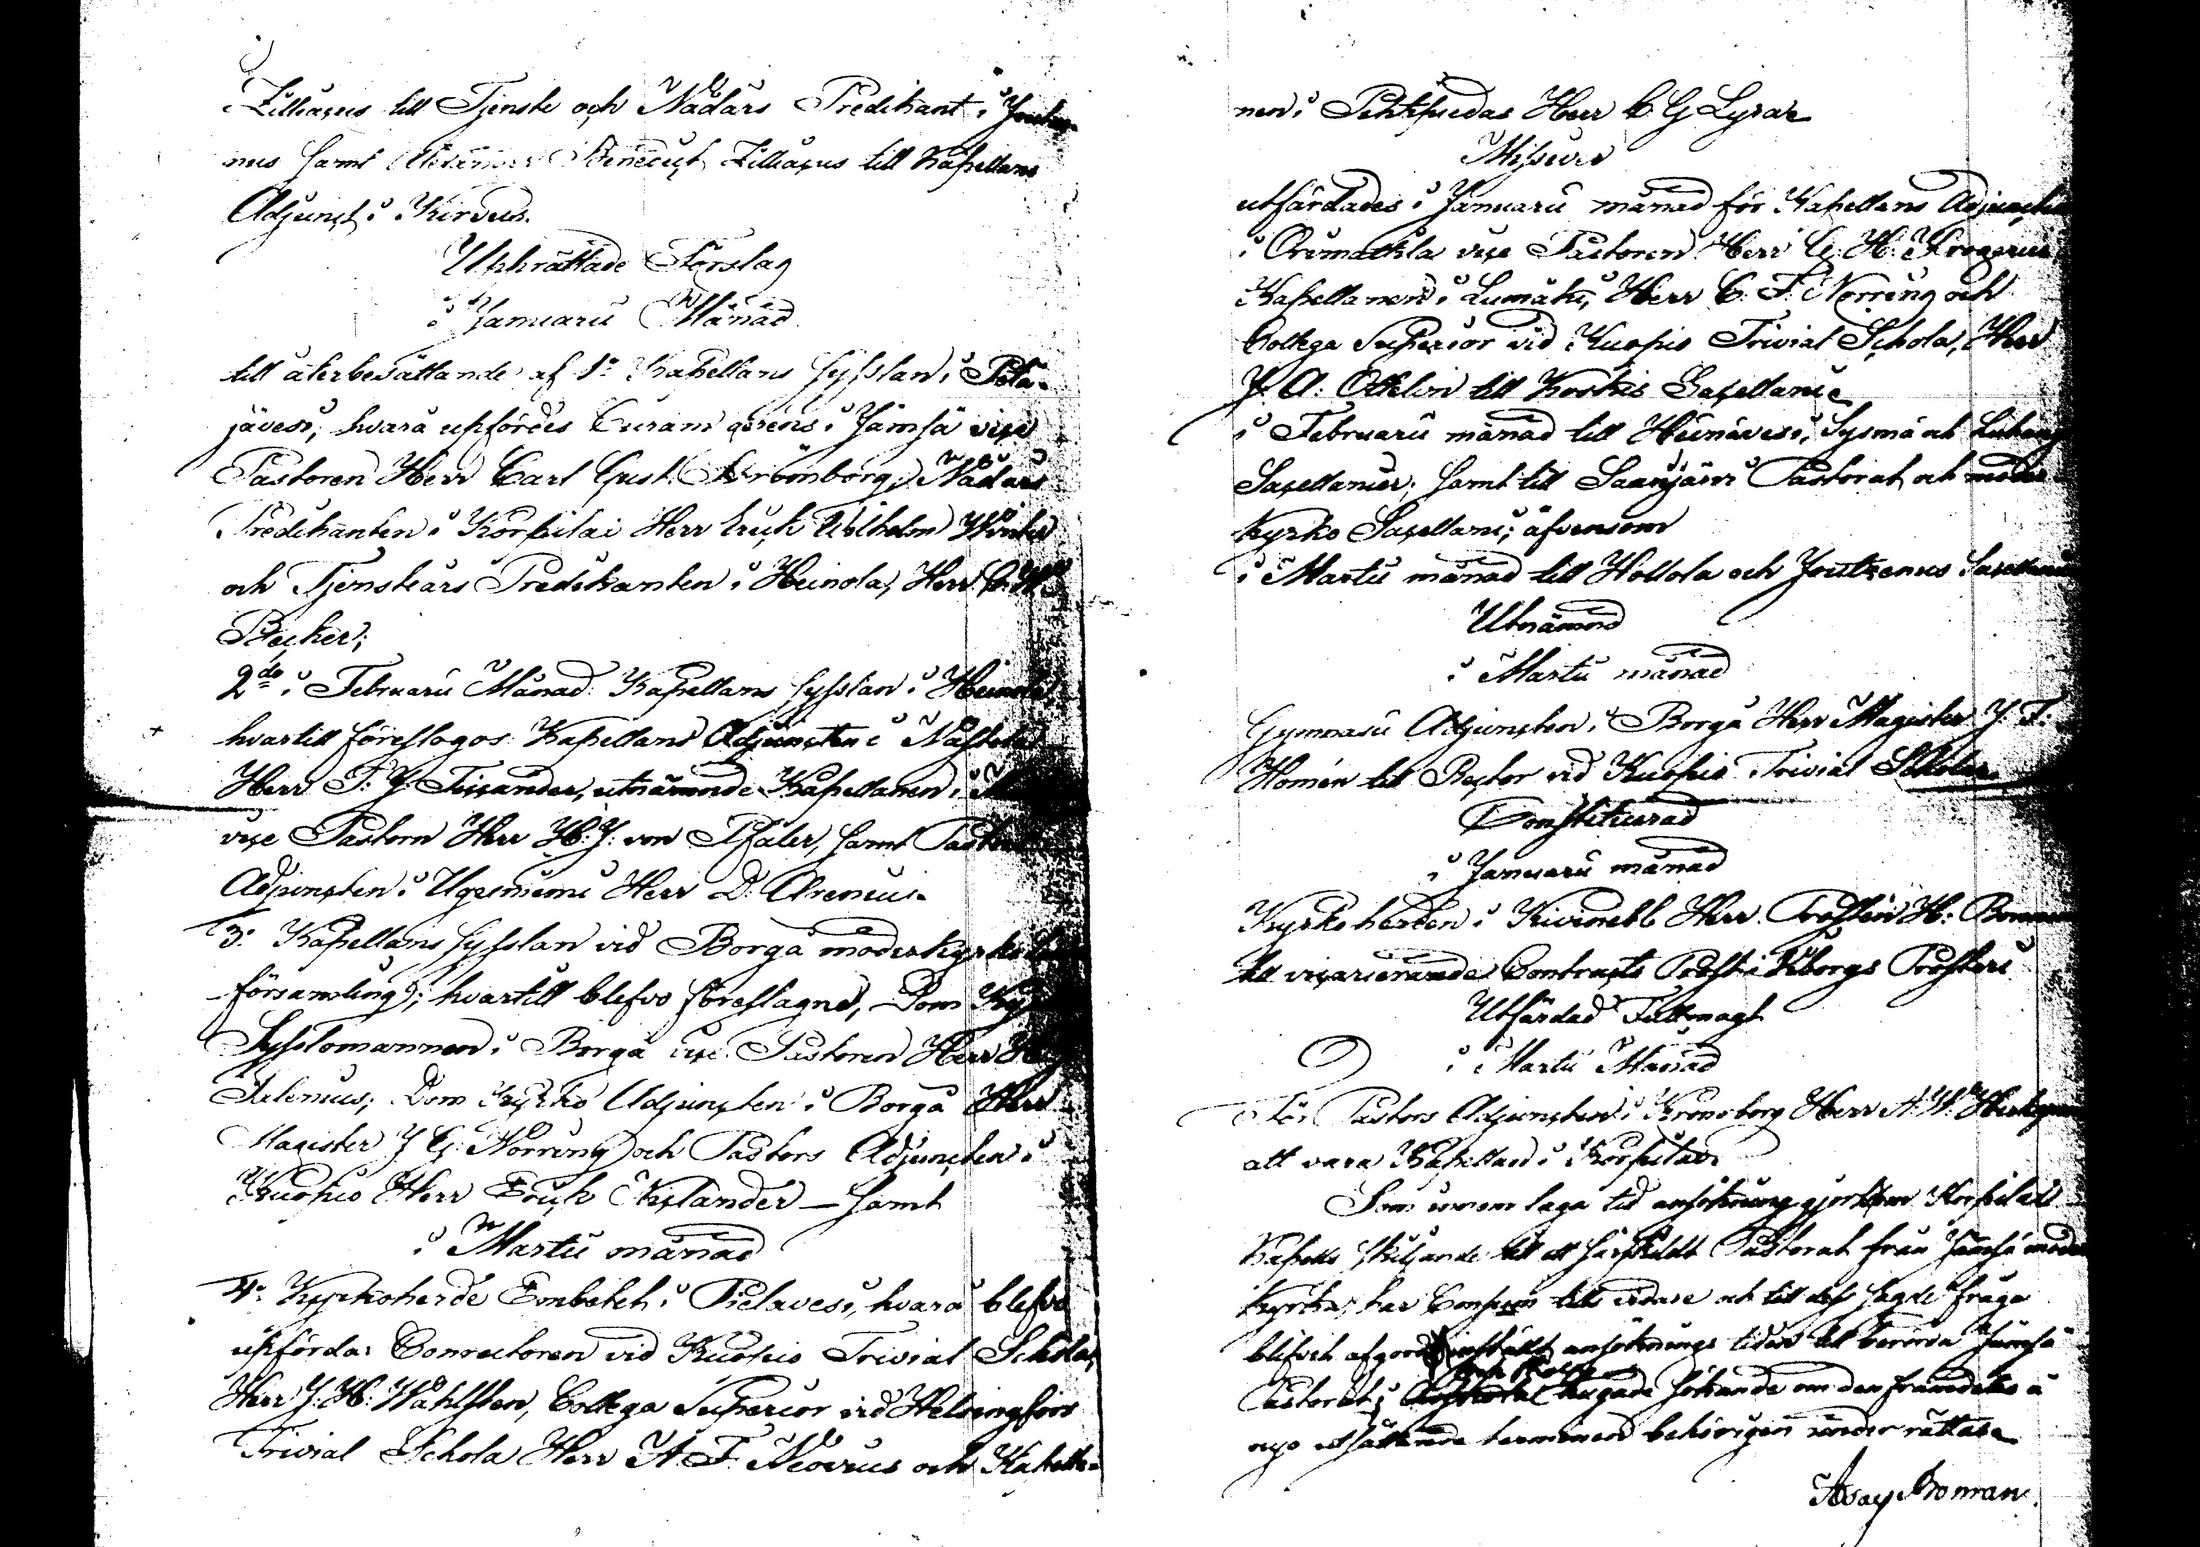 Zilliacus till Tjenste och Nådårs Predikant i
nus samt Benedict Zilliacus till Kapellans
Adjunct i Kirvus.
Upprättade Förslag
i Januarii Månad
till återbesättande af 1o Kapellans sysslan i Piela-
jävesi, hvara upfördes Curam gerens i Jämsä vice
Pastoren Herr Carl Gust. Strömborg, Nådårs
Predikanten i Korpilax Herr Erich Wilhelm
och Tjensteårs Predikanten i Heinola, Herr C. W.
Becker;
2do i Februarii Månad Kapellans sysslan i Heinola
hvartill föreslogos Kapellans Adjuncten i Nastola
Herr F. J. Ticcander, utnämnde Kapellanen i
vice Pastorn Herr H. J. von Pfaler, samt Pastors
Adjuncten i Ugesniemi Herr D. Arenius.
3o Kapellans sysslan vid Borgå moderkyrko
församling; hvartill blefvo föreslagne, Dom
Sysslomannen i Borgå vice Pastoren Herr
Selenius; Dom kyrko Adjuncten i Borgå Herr
Magister J. G. Norring och Pastors Adjuncten i
Kuopio Herr Erich Neslander – samt
i Martii månad
4o Kyrkoherde Embetet i Pielavesi, hvara blefvo
upförda: Conrectoren vid Kuopio Trivial Schola,
Herr J. H. Wahlsten, Collega Superior vid Helsingfors
Trivial Schola Herr A. F. Neovius och Kapella-
nen i Herr C G Lyra
Missiver
utfärdades i Januarii månad för Kapellans Adjuncten
i Orimattila vice Pastoren Herr C. H. Krogerus
Kapellanen i Lumäki, Herr C. F. Norring och
Collega Superior vid Kuopio Trivial Schola, Herr
J. A. Ottelin till Koskis Sacellanie
i Februarii månad till Heinävesi, Sysmä och
Sacellanier, samt till Saarijärvi Pastorat och moder
kyrko Sacellani; äfvensom
i Martii månad till Hollola och Joutsenus
Utnämnd
i Martii månad
Gymnasii Adjuncten i Borgå Herr Magister J. F.
Homén till Rector vid Kuopio Trivial Schola.
Constituerad
i Januarii månad
Kyrkoherden i Kivinebb Herr Prosten H:
till vicarierande Contracts Prost i Wiborgs Prosteri
Utfärdad Fullmagt
i Martii Månad
För Pastors Adjuncten i Kronoborg Herr A. W.
att vara Kapellan i Korpilax
Som inom laga tid ansökning gjorts om Korpilax
Kapells skiljande till ett särskildt Pastorat från Jämsä moder
kyrka, har Consm tills vidare och till dess sagde fråga
blifvit afgord inställt ansöknings tiden till berörda Jämsä
Pastorat; hugade sökande om den framdeles å
nyo utsättande terminen behörigen underrättas
Asay Broman.